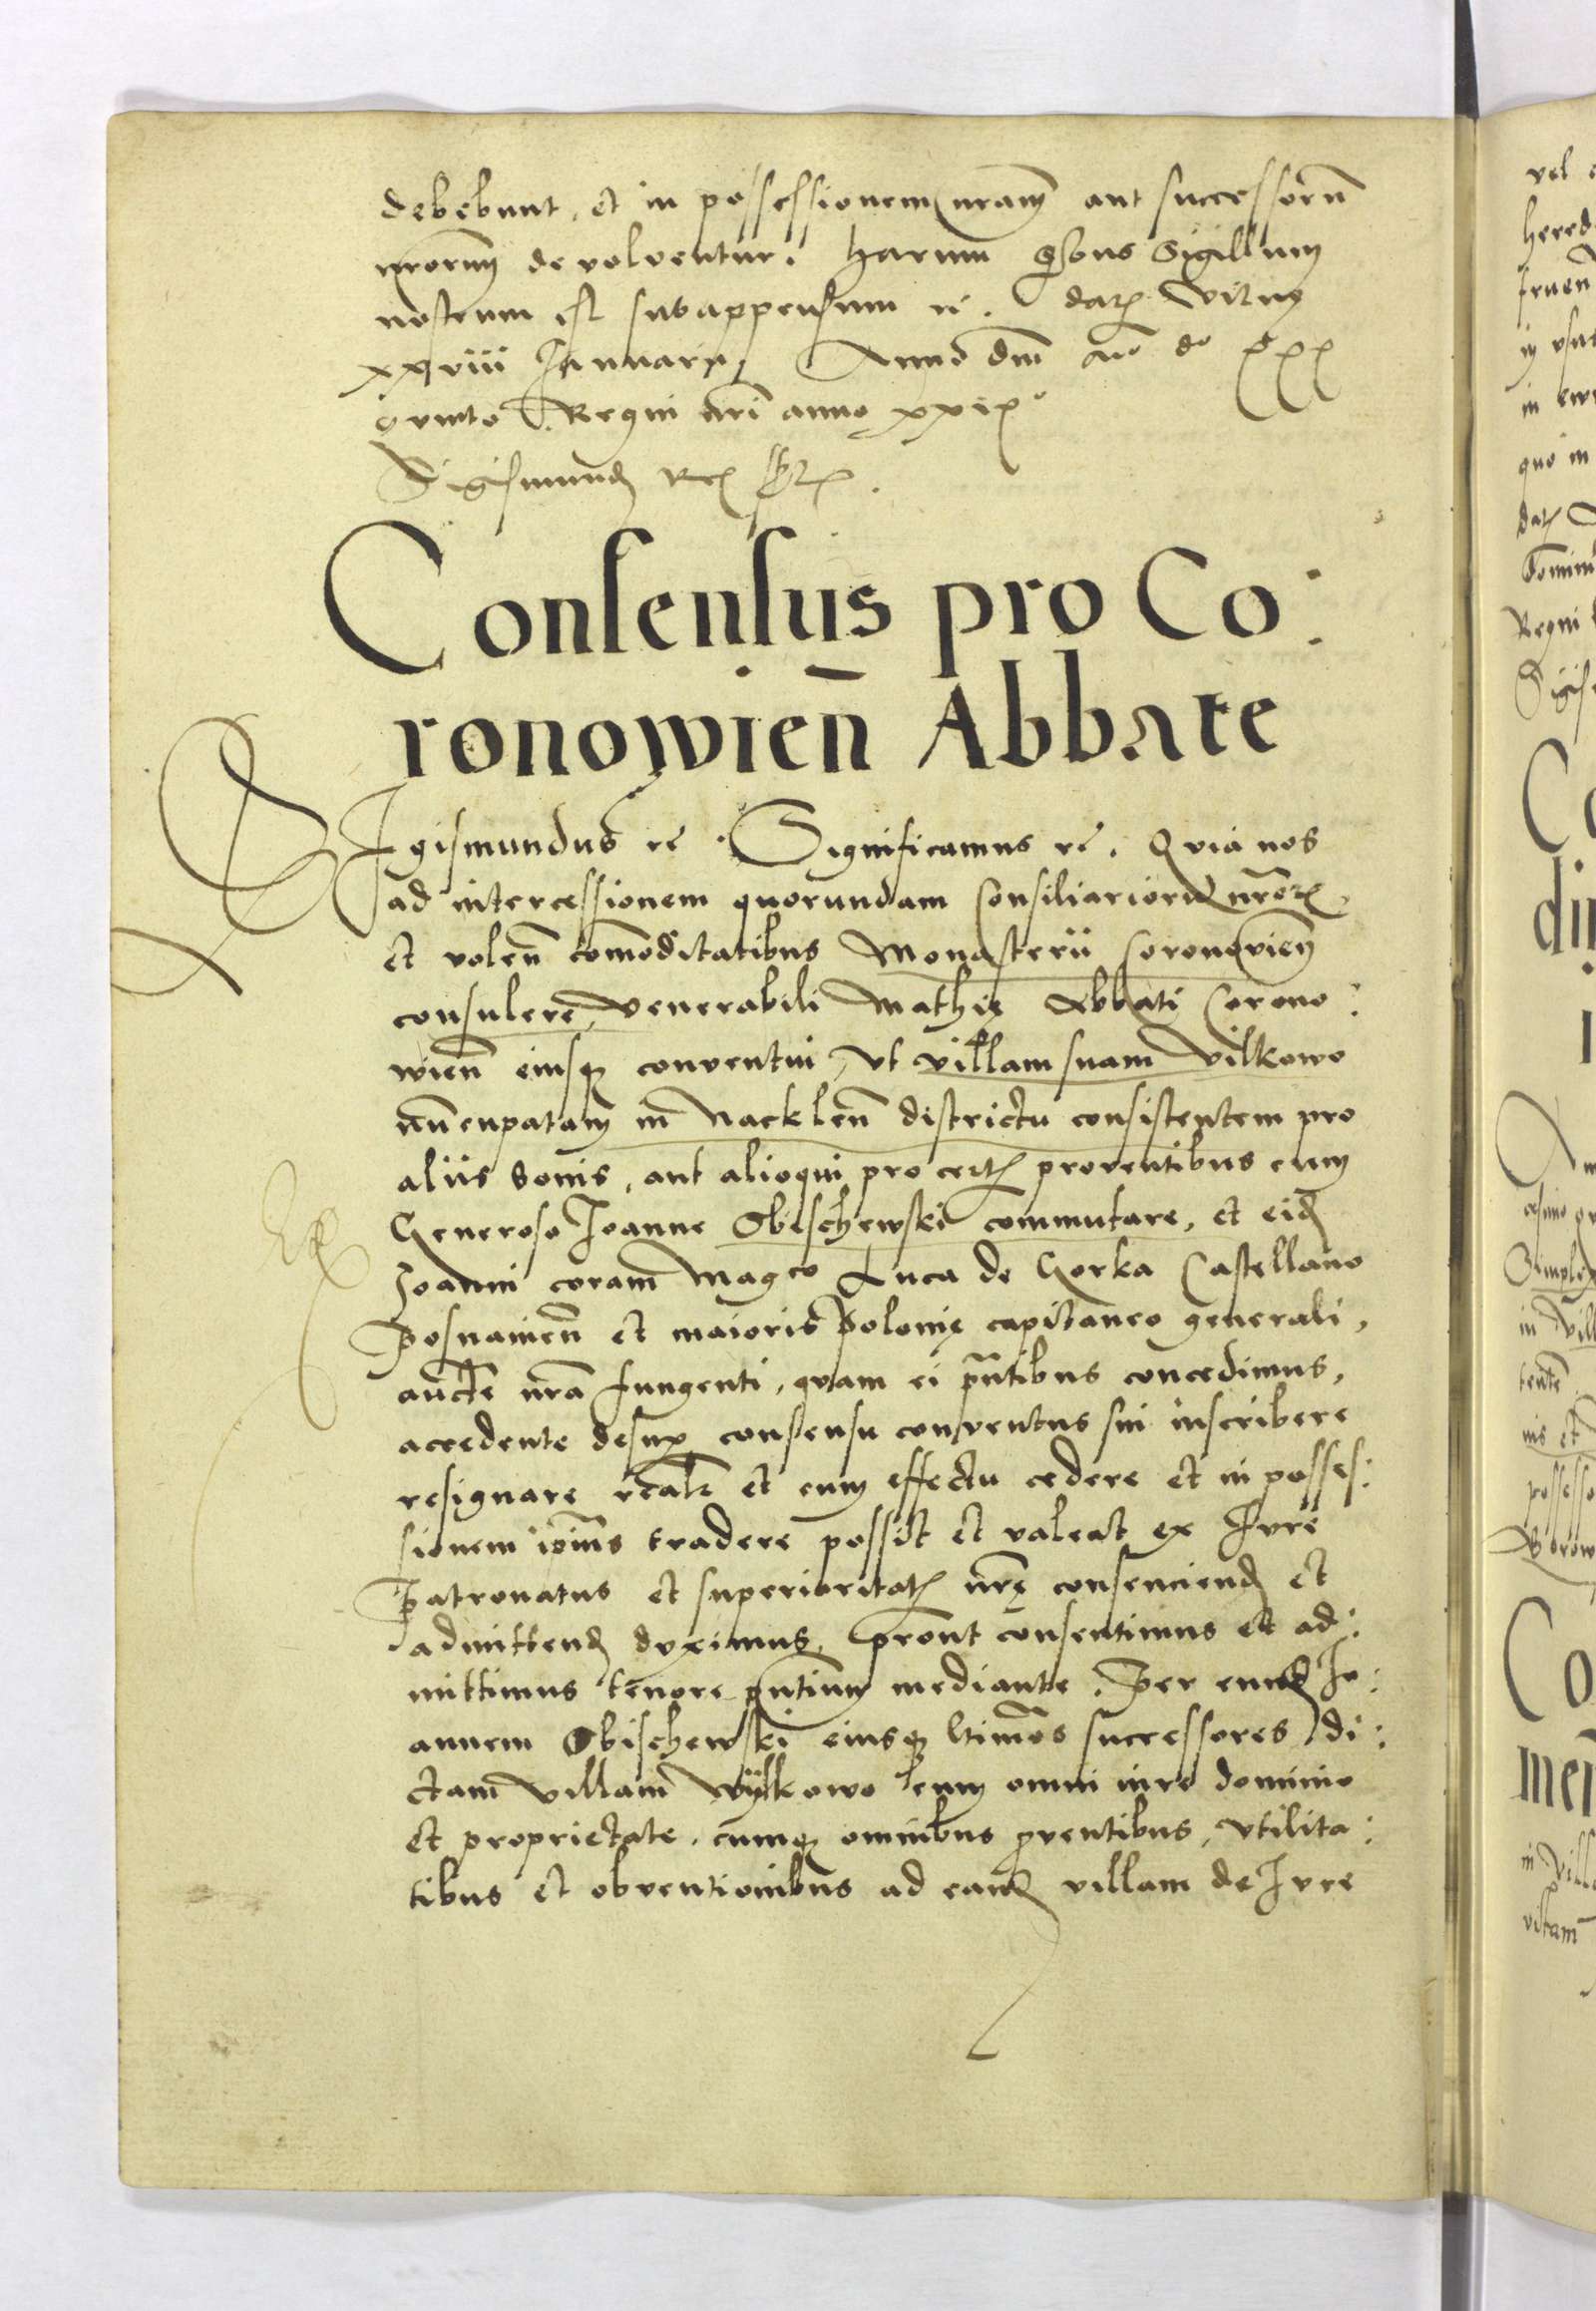 debebunt, et in possessionem nram aut successorũ
nrorum devolventur. Harum quibus Sigillum
nostrum est subappensum rc̃. Datę Vilnę
xxviii Januarii, Anno dm̃ mo do xxx
quinto Regni nri anno xxixo
Sigismundꝰ Rex
Consensus pro Co:
ronowien̄ Abbate
Sigismundus rc̃. Significamus rc̃. Quia nos
ad intercessionem quorundam Consiliariorum nrõrũ
et volen̄ com̃oditatibus Monasterii Coronovien̄
consulere, Venerabili Mathię Abbati Corono:
wien̄ eiusqꝫ conventui, Ut villam suam Vilkowo
nūcupatam in Nacklen̄ districtu consistentem pro
aliis bonis, aut alioqui pro certis proventibus cum
Generoso Joanne Obischewski commutare, et eidẽ
Joanni coram Magco Luca de Gorka Castellano
Posnanien̄ et maioris Polonię capitaneo generali,
auctẽ nra fungenti, quam ei pñtibus concedimus,
accedente desup consensu conventus sui inscribere
resignare realr̃ et cum effectu cedere et in posses:
sionem ipius tradere possit et valeat ex Jure
Patronatus et superioritatis nrę consenciendũ et
admittendũ duximus, prout consentimus et ad:
mittimus tenore pñtium mediante. Per eundẽ Jo:
annem Obischewski eiusqꝫ ltimos successores di:
ctam villam Wÿlkowo cum omni iure dominio
et proprietate, cumqꝫ omnibus pventibus, utilita:
tibus et obventionibus ad eandẽ villam de Jure